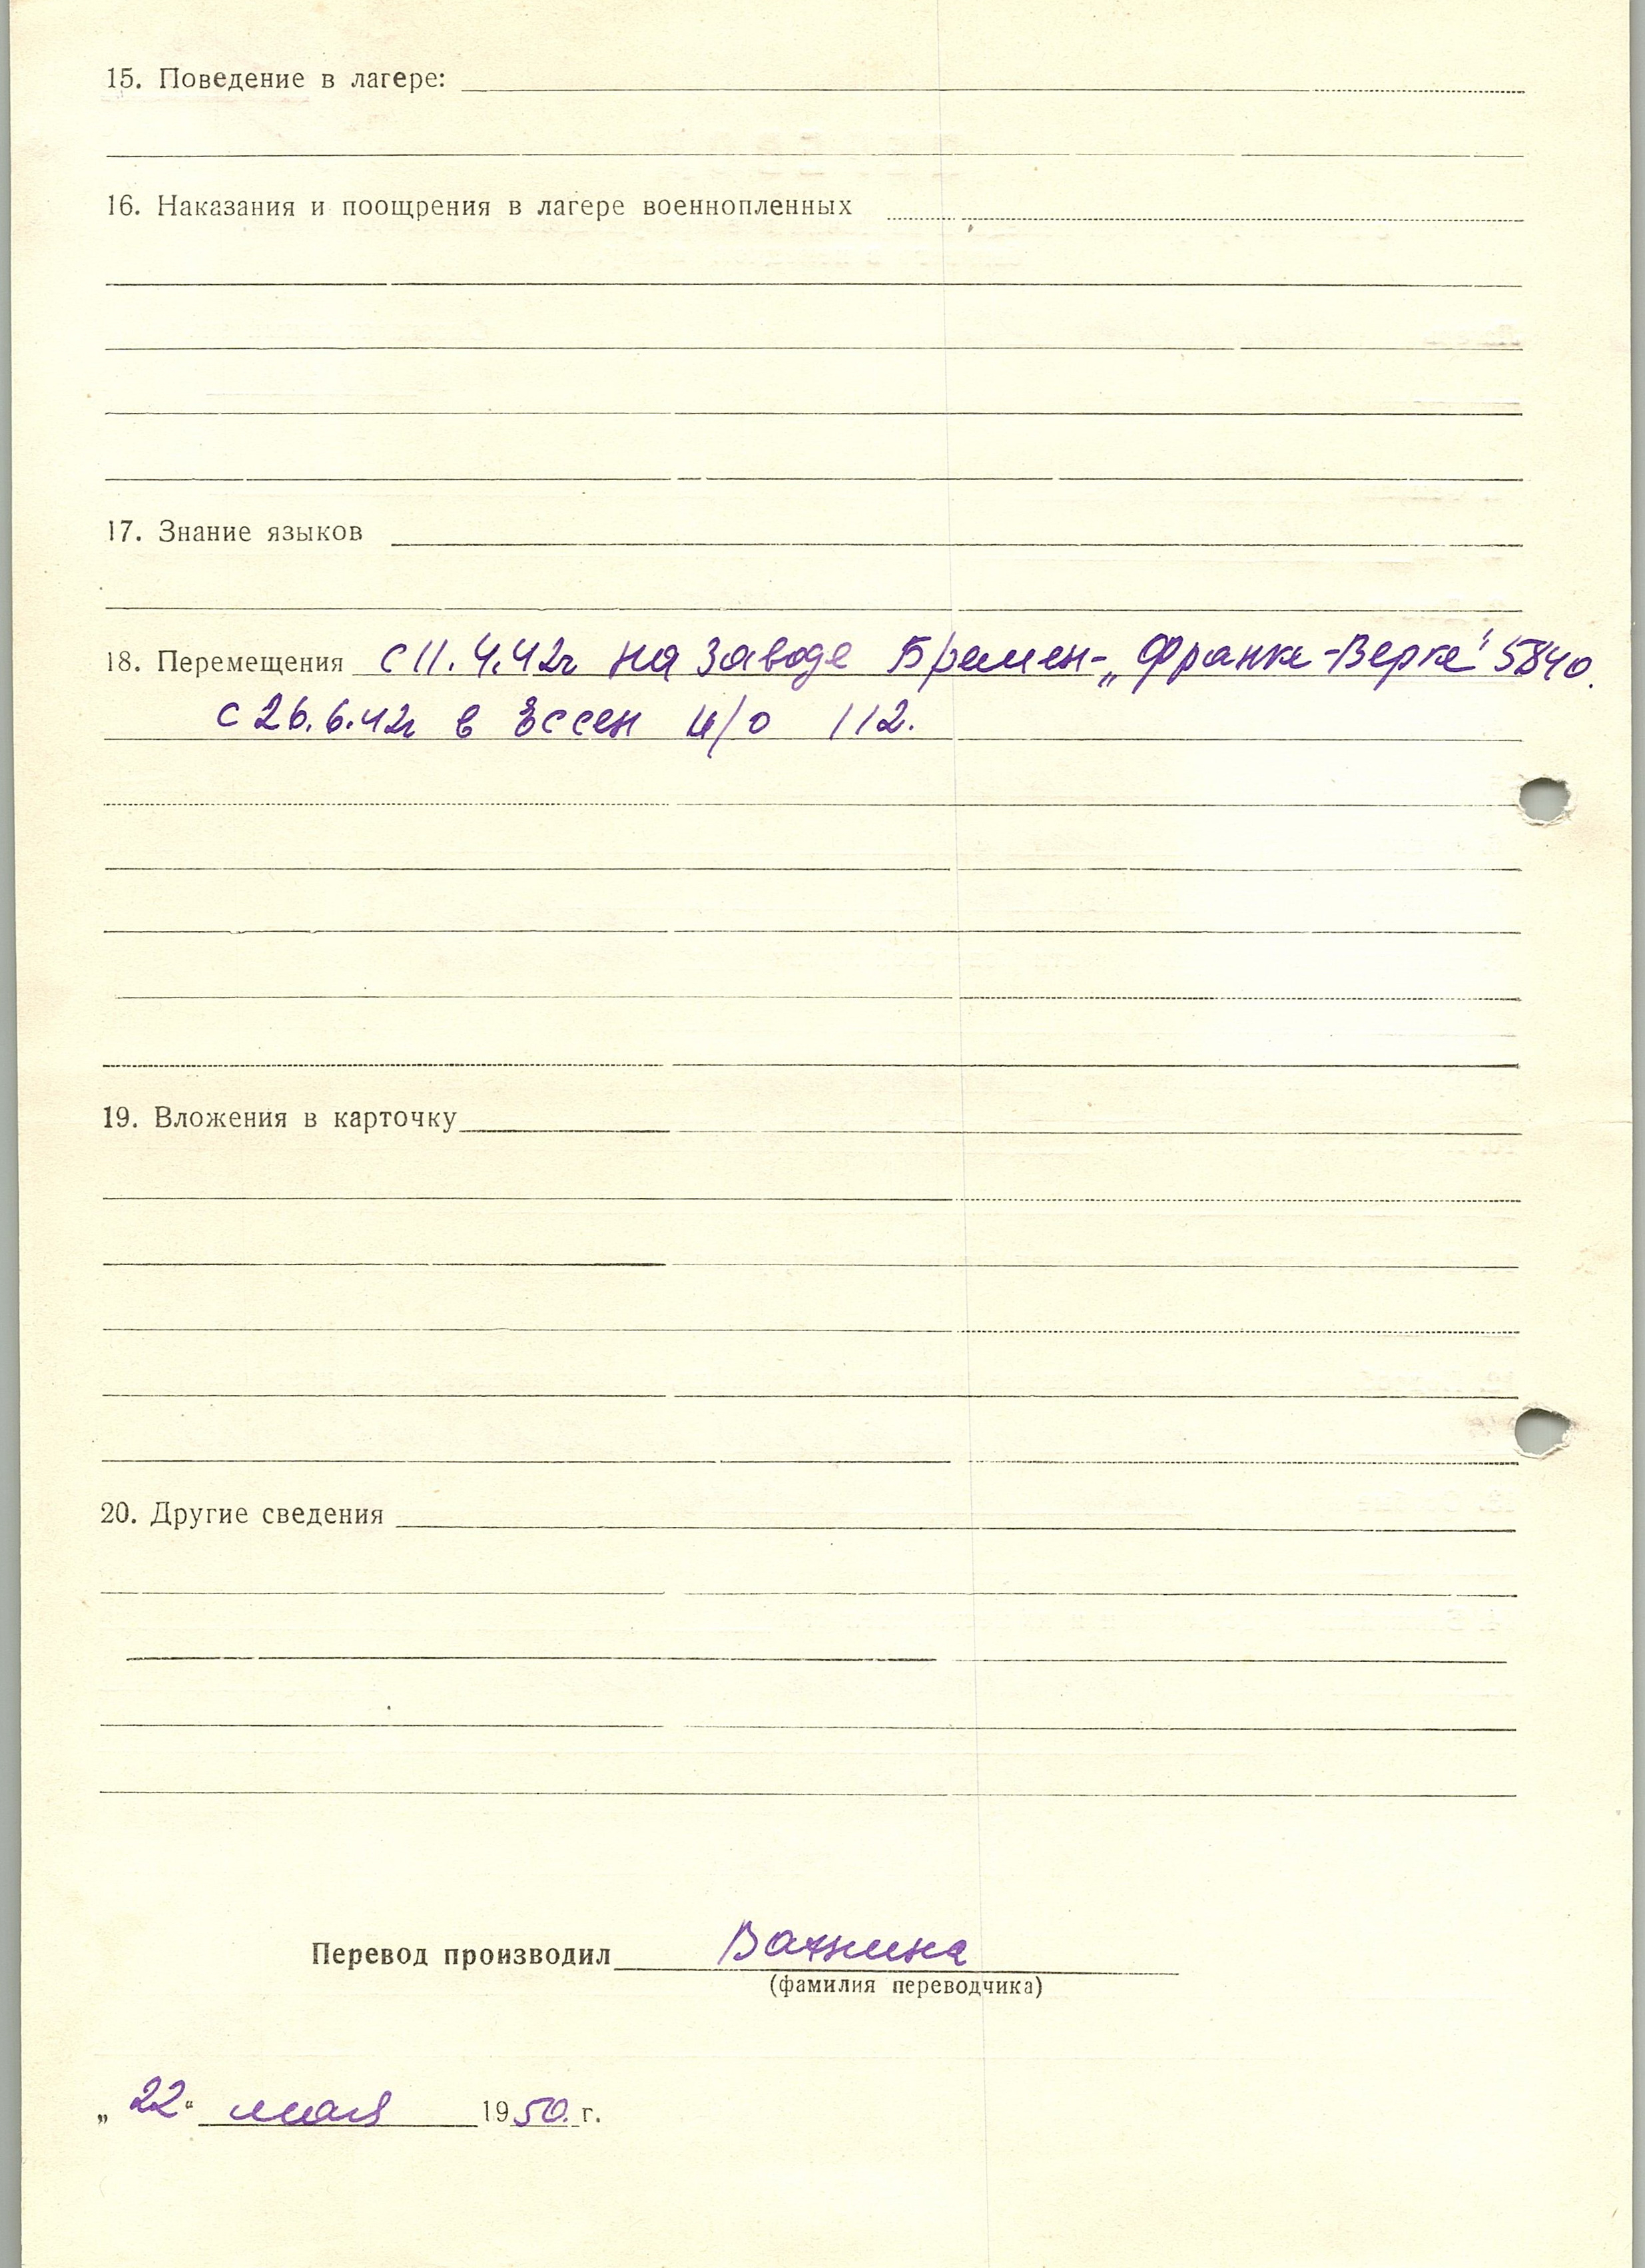 15. Поведение в лагере:
16. Наказания и поощрения в лагере военнопленных
17. Знание языков
18. Перемещения с 11.4.42г на заводе Бремен-„Франке-Верке" 5840.
с 26.6.42г в Эссен и/о 112.
19. Вложения в карточку
20. Другие сведения
Перевод производил
(фамилия переводчика)
„22" мая 1950. г.